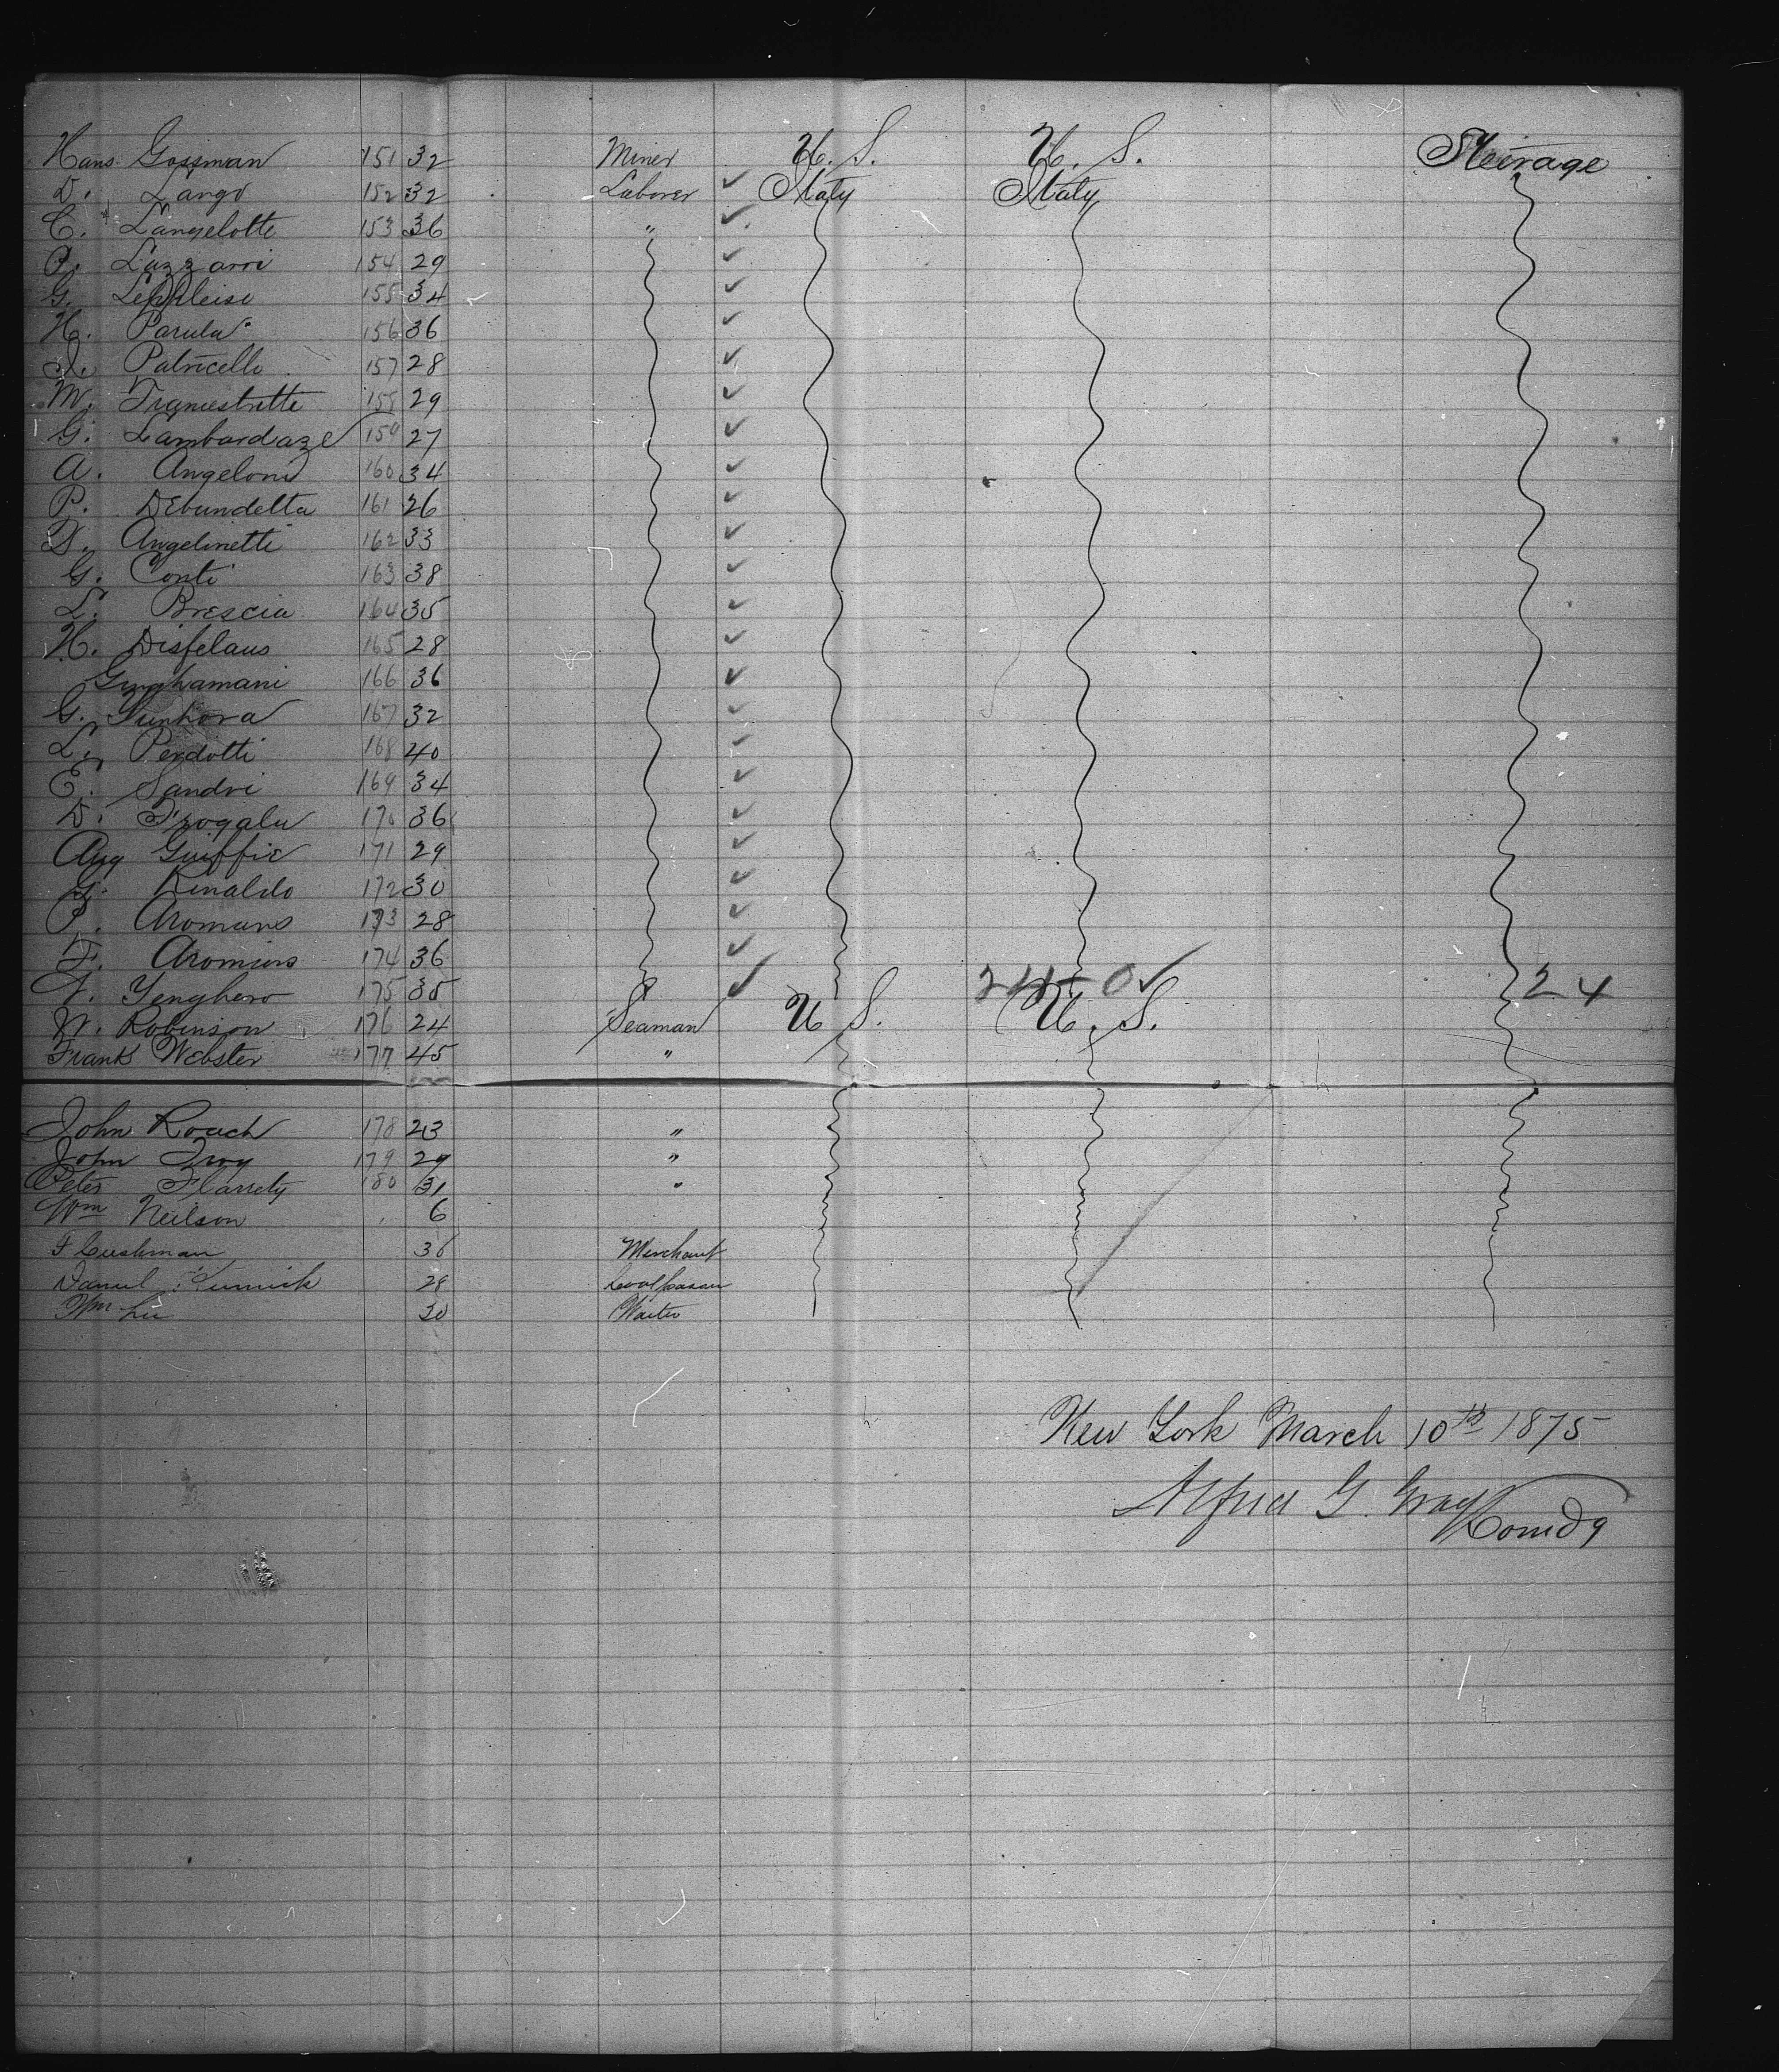 Hans Gossman 151 32 Miner U. S. U. S. Steirage
D. Lango 152 32 Laborer ✓ Italy Italy
C. Langelotte 153 36 " ✓
P. Lazzarri 154 29 ✓
G. 155 34 ✓
H. Parula 156 36 ✓
Patricello 157 28 ✓
M. 158 29 ✓
G. Lambardaze 159 27 ✓
A. Angeloni 160 34 ✓
P. Debundelta 161 26 ✓
D. Angelinetti 162 33 ✓
G. Conti 163 38 ✓
L. Brescia 164 35 ✓
H. Disfelaus 165 28 ✓
Gurghamani 166 36 ✓
G. 167 32 ✓
L. Perdotti 168 40 ✓
E. Sandri 169 34 ✓
D. Frogalu 170 36 ✓
Aug Guiffie 171 29 ✓
G. Rinaldo 172 30 ✓
P. Aromans 173 28 ✓
F. 174 36 ✓
V. Yenghero 175 35 ✓ 24
W. Robinson 176 24 Seaman U S. U. S.
Frank Webster 177 45 "
John Roach 178 23 "
John Troy 179 29 "
Peter Flarrety 180 31 "
Wm Neilson 6
F Cushman 36 Merchant
Daniel 28
Wm Lee 30 Waiter
New York March 10th 1875
Alfred G. Gray Comdg